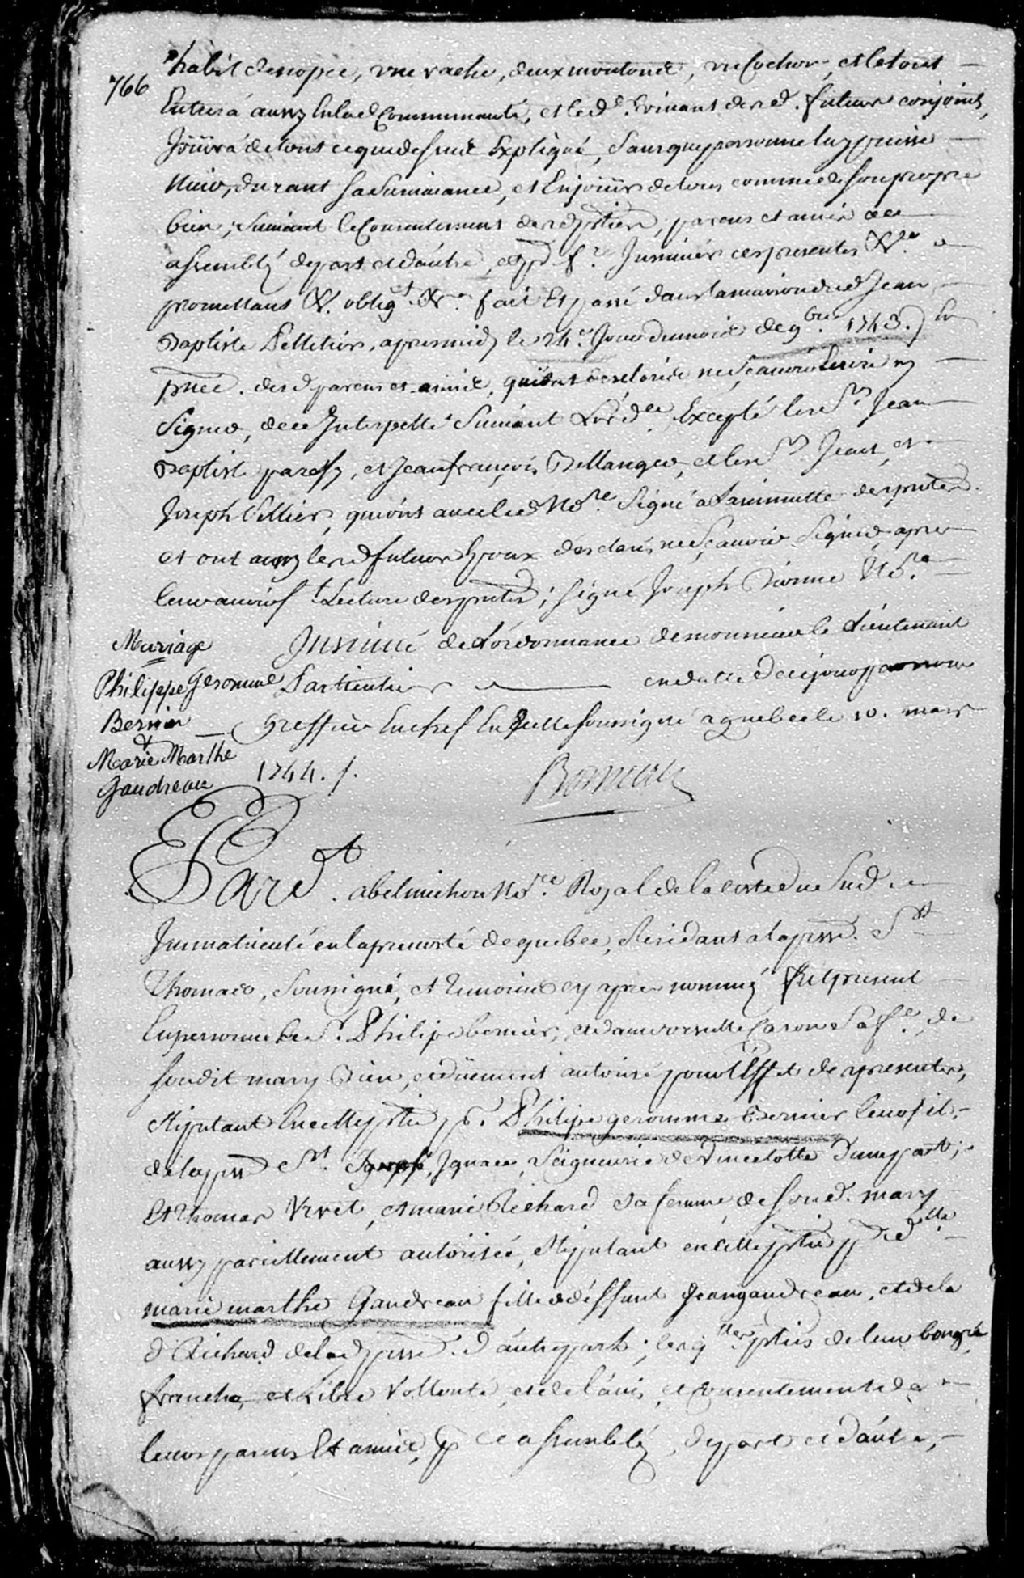 766
habit de nopce, une vache, deux moutons, un Cochon, et le tout
Entrera aussy En lad Communauté, et le d. Survivant desd. futurs conjoints,
Jouira de tout ce que dessus Expliqué, Sans que personne luy puisse
Nuire, durant sa Survivance, et En jouir de tous comme de son propre
bien; Suivant le Consentement desd parties, parens et amis
assemblés de part et d'autre,
promettant &. oblig.t &. fait Et passé dans la maison dud Jean
Baptiste Pelletier, apres midy le 24.e Jour du mois de 9bre. 1743. En
pnce. desd parens et amis, qui ont declaré ne Scavoir Ecrire ny
Signer, de ce Interpellé Suivant L'ord.ce Excepté les Srs. Jean
Baptiste et Jean françois Bellanger, et les Srs. Jean, et
Joseph Pellier, qui ont avec led No.re Signé a La minutte des pntes
et ont aussy lesd futurs Epoux declaré ne Scavoir Signer apres
leur avoir f.t Lecture des pntes; Signé Joseph Dionne No.re
Insinué de L'ordonnance de monsieur le Lieutenant
Particulier en datte de ce jour par nous
Greffier En chef En Icelle Soussigné a quebec le 10. mars
1744. /.
Boisseau
Mariage
Philippe Geromme
Bernier
&
Marie Marthe
Gaudreau
Pard.t abel michon No.re Royal de la coste du Sud
Immatriculé en la prevosté de quebec, Residant a la psse. St
Thomas, Soussigné, et temoins cy apres nommés fut present
En personne le Sr. Philipe bernier, et dam ursulle Caron Sa fe., de
son dit mary bien, et düement autorisé pour L'effet des presentes,
Stipulant En cette ptie pr. Philipe geromme Bernier leur fils
de la psse St. Ignace, Seigneurie de Vincelotte d'une part;
Et thomas Vivet, et marie Richard Sa femme, de son d. mary
aussy pareillement autorisée, Stipulant en cette ptie pr delle
marie marthe Gaudreau fille de déffunt Jean gaudreau, et de la
d Richard de lad psse. d'autre part; lesq.lles pties de leur bon gré
franche, et Libre Vollonté, et de l'avis, et consentement de
leurs parens Et amis, pr ce assemblés, de part et d'autre,